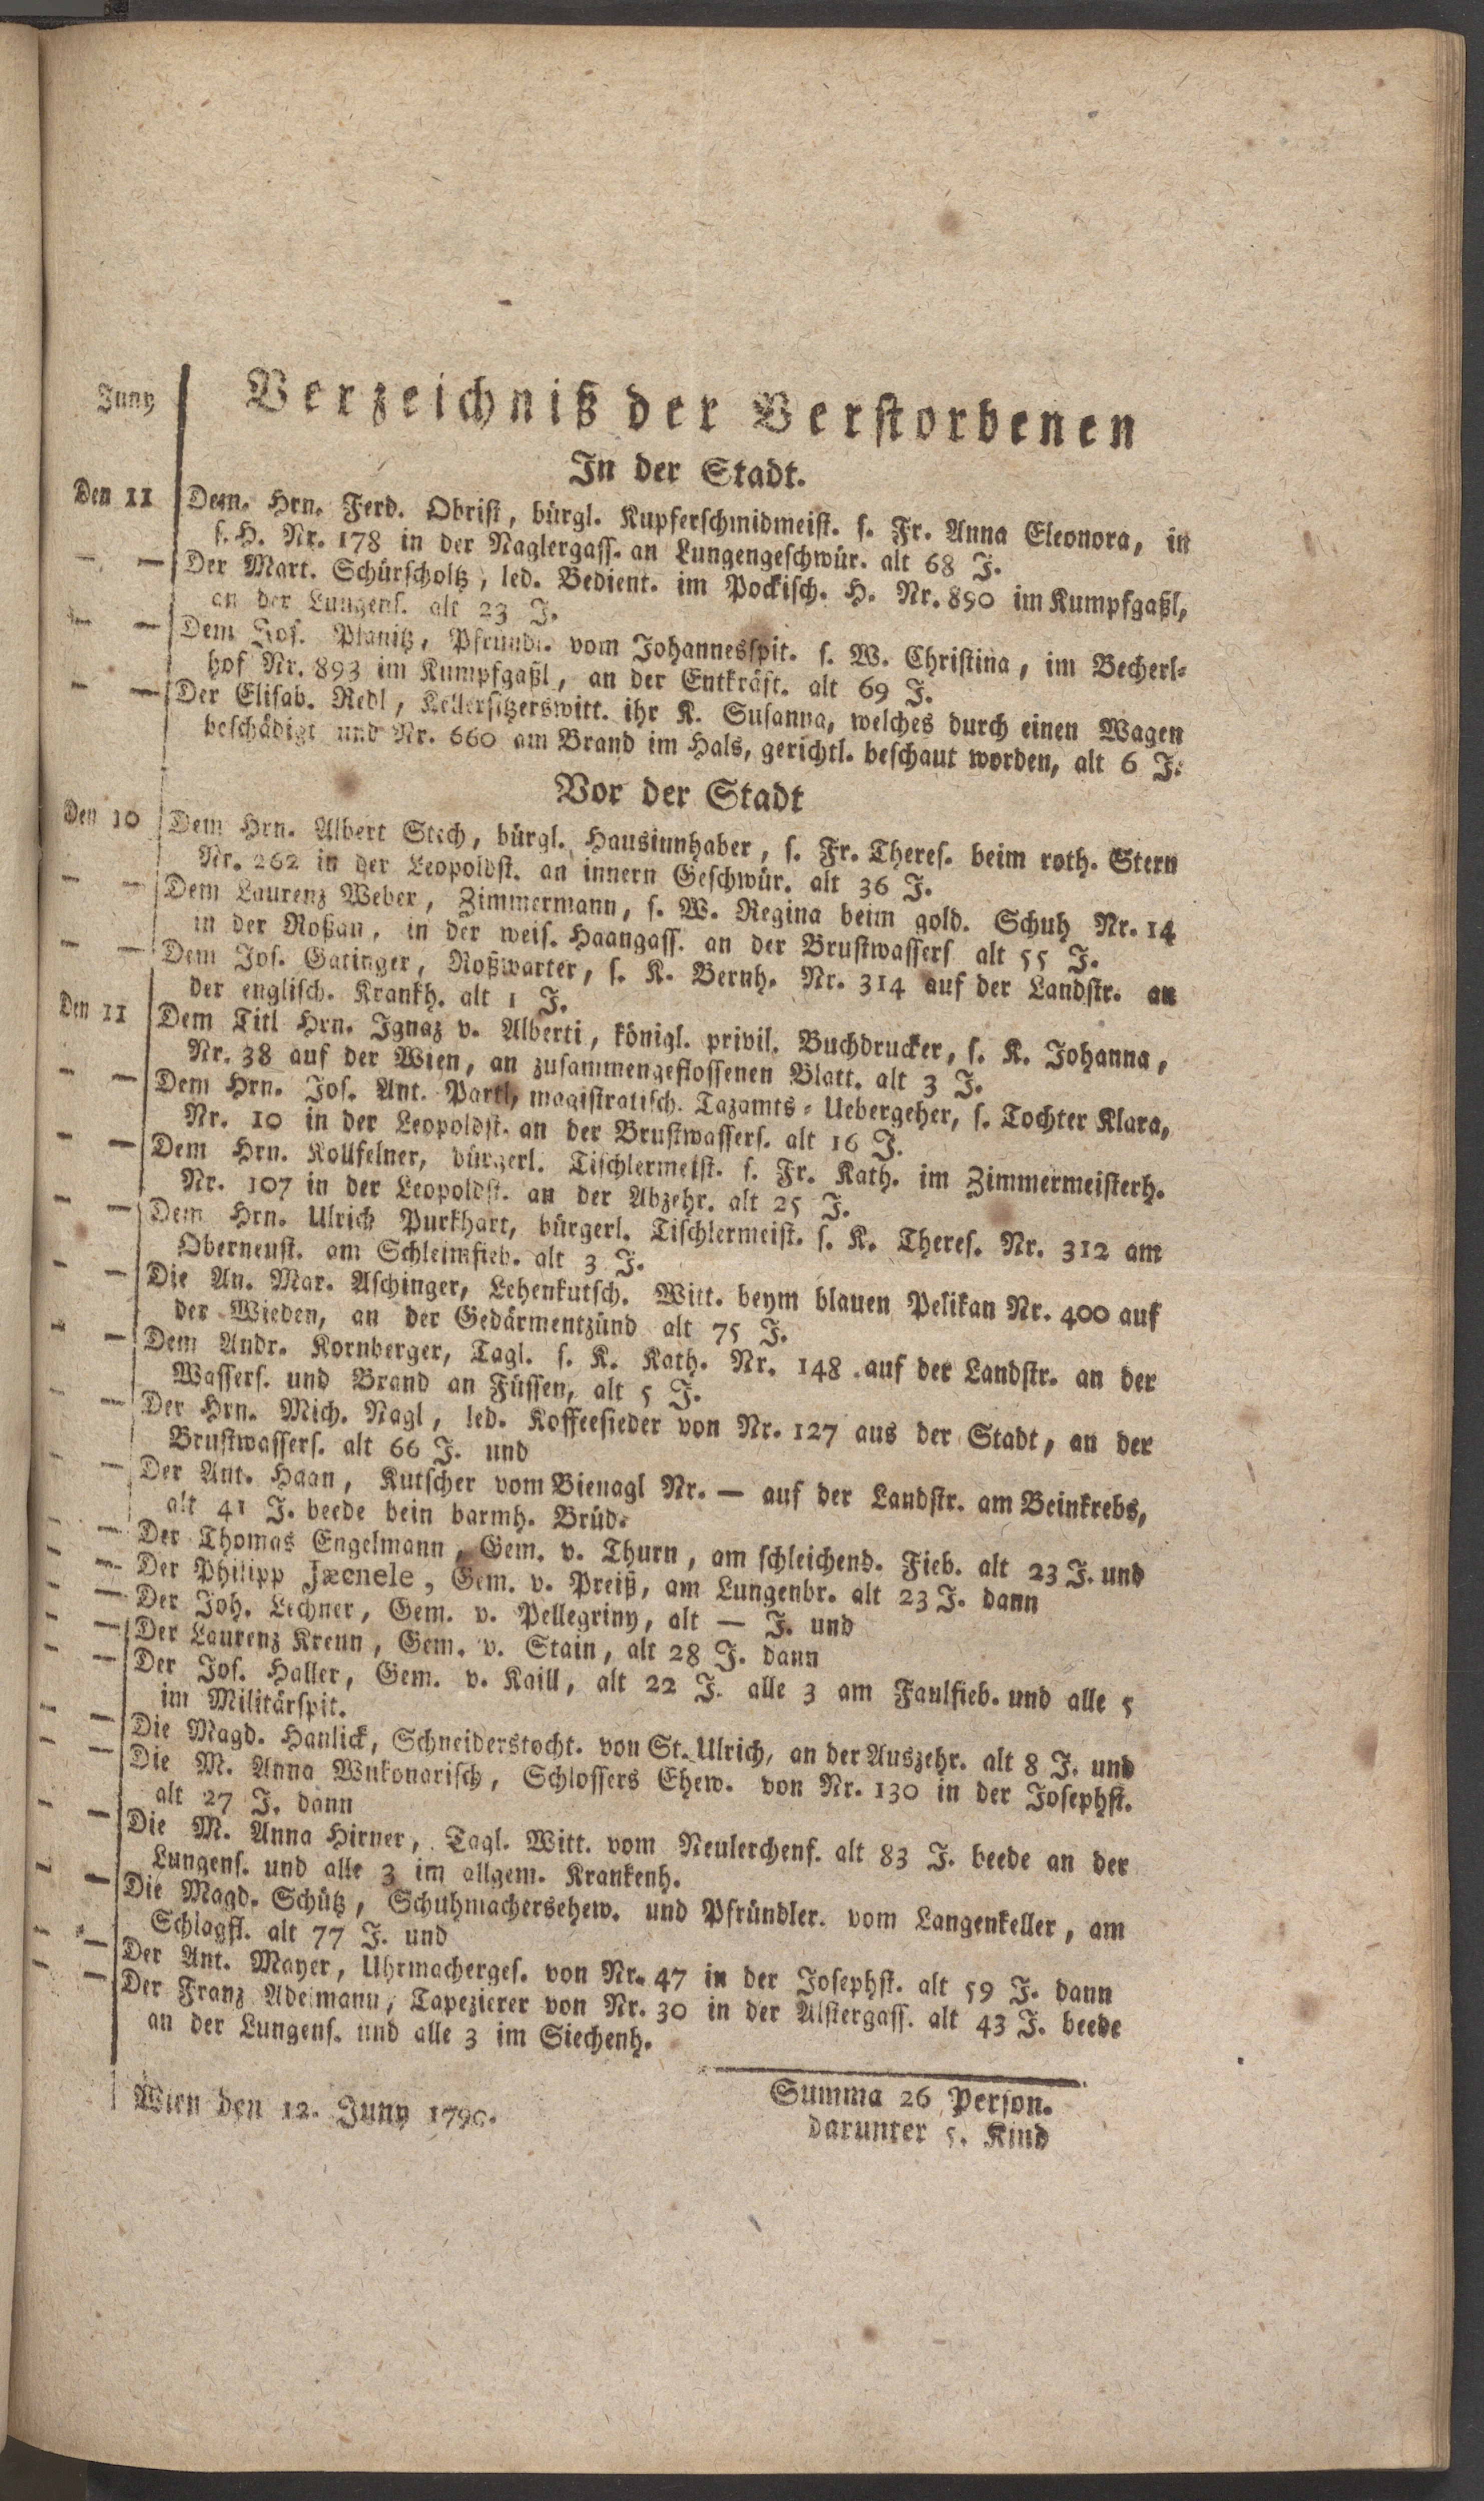 Juny
Verzeichniß der Verstorbenen
In der Stadt.
Den 11 Dem. Hrn. Ferd. Obrist, bürgl. Kupferschmidmeist. s. Fr. Anna Eleonora, in
s. H. Nr. 178 in der Naglergass. an Lungengeschwür. alt 68 J.
— — Der Mart. Schürscholtz, led. Bedient. im Pockisch. H. Nr. 890 im Kumpfgaßl,
an der Lungens. alt 23 J.
— — Dem Jos. Planitz, Pfründl. vom Johannesspit. s. W. Christina, im Becherl-
hof Nr. 893 im Kumpfgaßl, an der Entkräft. alt 69 J.
— — Der Elisab. Redl, Kellersitzerswitt. ihr K. Susanna, welches durch einen Wagen
beschädigt und Nr. 660 am Brand im Hals, gerichtl. beschaut worden, alt 6 J.
Vor der Stadt
Den 10 Dem Hrn. Albert Stech, bürgl. Hausinnhaber, s. Fr. Theres. beim roth. Stern
Nr. 262 in der Leopoldst. an innern Geschwür. alt 36 J.
— — Dem Laurenz Weber, Zimmermann, s. W. Regina beim gold. Schuh Nr. 14
in der Roßau, in der weis. Haangass. an der Brustwassers alt 55 J.
— — Dem Jos. Gatinger, Roßwarter, s. K. Bernh. Nr. 314 auf der Landstr. an
der englisch. Krankh. alt 1 J.
Den 11 Dem Titl Hrn. Ignaz v. Alberti, königl. privil. Buchdrucker, s. K. Johanna,
Nr. 38 auf der Wien, an zusammengeflossenen Blatt. alt 3 J.
— — Dem Hrn. Jos. Ant. Partl, magistratisch. Tazamts-Uebergeher, s. Tochter Klara,
Nr. 10 in der Leopoldst. an der Brustwassers. alt 16 J.
— — Dem Hrn. Kollfelner, bürgerl. Tischlermeist. s. Fr. Kath. im Zimmermeisterh.
Nr. 107 in der Leopoldst. an der Abzehr. alt 25 J.
— — Dem Hrn. Ulrich Purkhart, bürgerl. Tischlermeist. s. K. Theres. Nr. 312 am
Oberneust. am Schleimfieb. alt 3 J.
— — Die An. Mar. Aschinger, Lehenkutsch. Witt. beym blauen Pelikan Nr. 400 auf
der Wieden, an der Gedärmentzünd alt 75 J.
— — Dem Andr. Kornberger, Tagl. s. K. Kath. Nr. 148 auf der Landstr. an der
Wassers. und Brand an Füssen, alt 5 J.
— — Der Hrn. Mich. Nagl, led. Koffeesieder von Nr. 127 aus der Stadt, an der
Brustwassers. alt 66 J. und
— — Der Ant. Haan, Kutscher vom Bienagl Nr. — auf der Landstr. am Beinkrebs,
alt 41 J. beede bein barmh. Brüd.
— — Der Thomas Engelmann, Gem. v. Thurn, am schleichend. Fieb. alt 23 J. und
— — Der Philipp Jæcnele, Gem. v. Preiß, am Lungenbr. alt 23 J. dann
— — Der Joh. Lechner, Gem. v. Pellegriny, alt — J. und
— — Der Laurenz Krenn, Gem. v. Stain, alt 28 J. dann
— — Der Jos. Haller, Gem. v. Kaill, alt 22 J. alle 3 am Faulfieb. und alle 5
im Militärspit.
— — Die Magd. Hanlick, Schneiderstocht. von St. Ulrich, an der Auszehr. alt 8 J. und
— — Die M. Anna Wukonarisch, Schlossers Ehew. von Nr. 130 in der Josephst.
alt 27 J. dann
— — Die M. Anna Hirner, Tagl. Witt. vom Neulerchenf. alt 83 J. beede an der
Lungens. und alle 3 im allgem. Krankenh.
— — Die Magd. Schütz, Schuhmachersehew. und Pfründler. vom Langenkeller, am
Schlagfl. alt 77 J. und
— — Der Ant. Mayer, Uhrmacherges. von Nr. 47 in der Josephst. alt 59 J. dann
— — Der Franz Adelmann, Tapezierer von Nr. 30 in der Alstergass. alt 43 J. beede
an der Lungens. und alle 3 im Siechenh.
Wien den 12. Juny 1790.
Summa 26 Person.
darunter 5. Kind